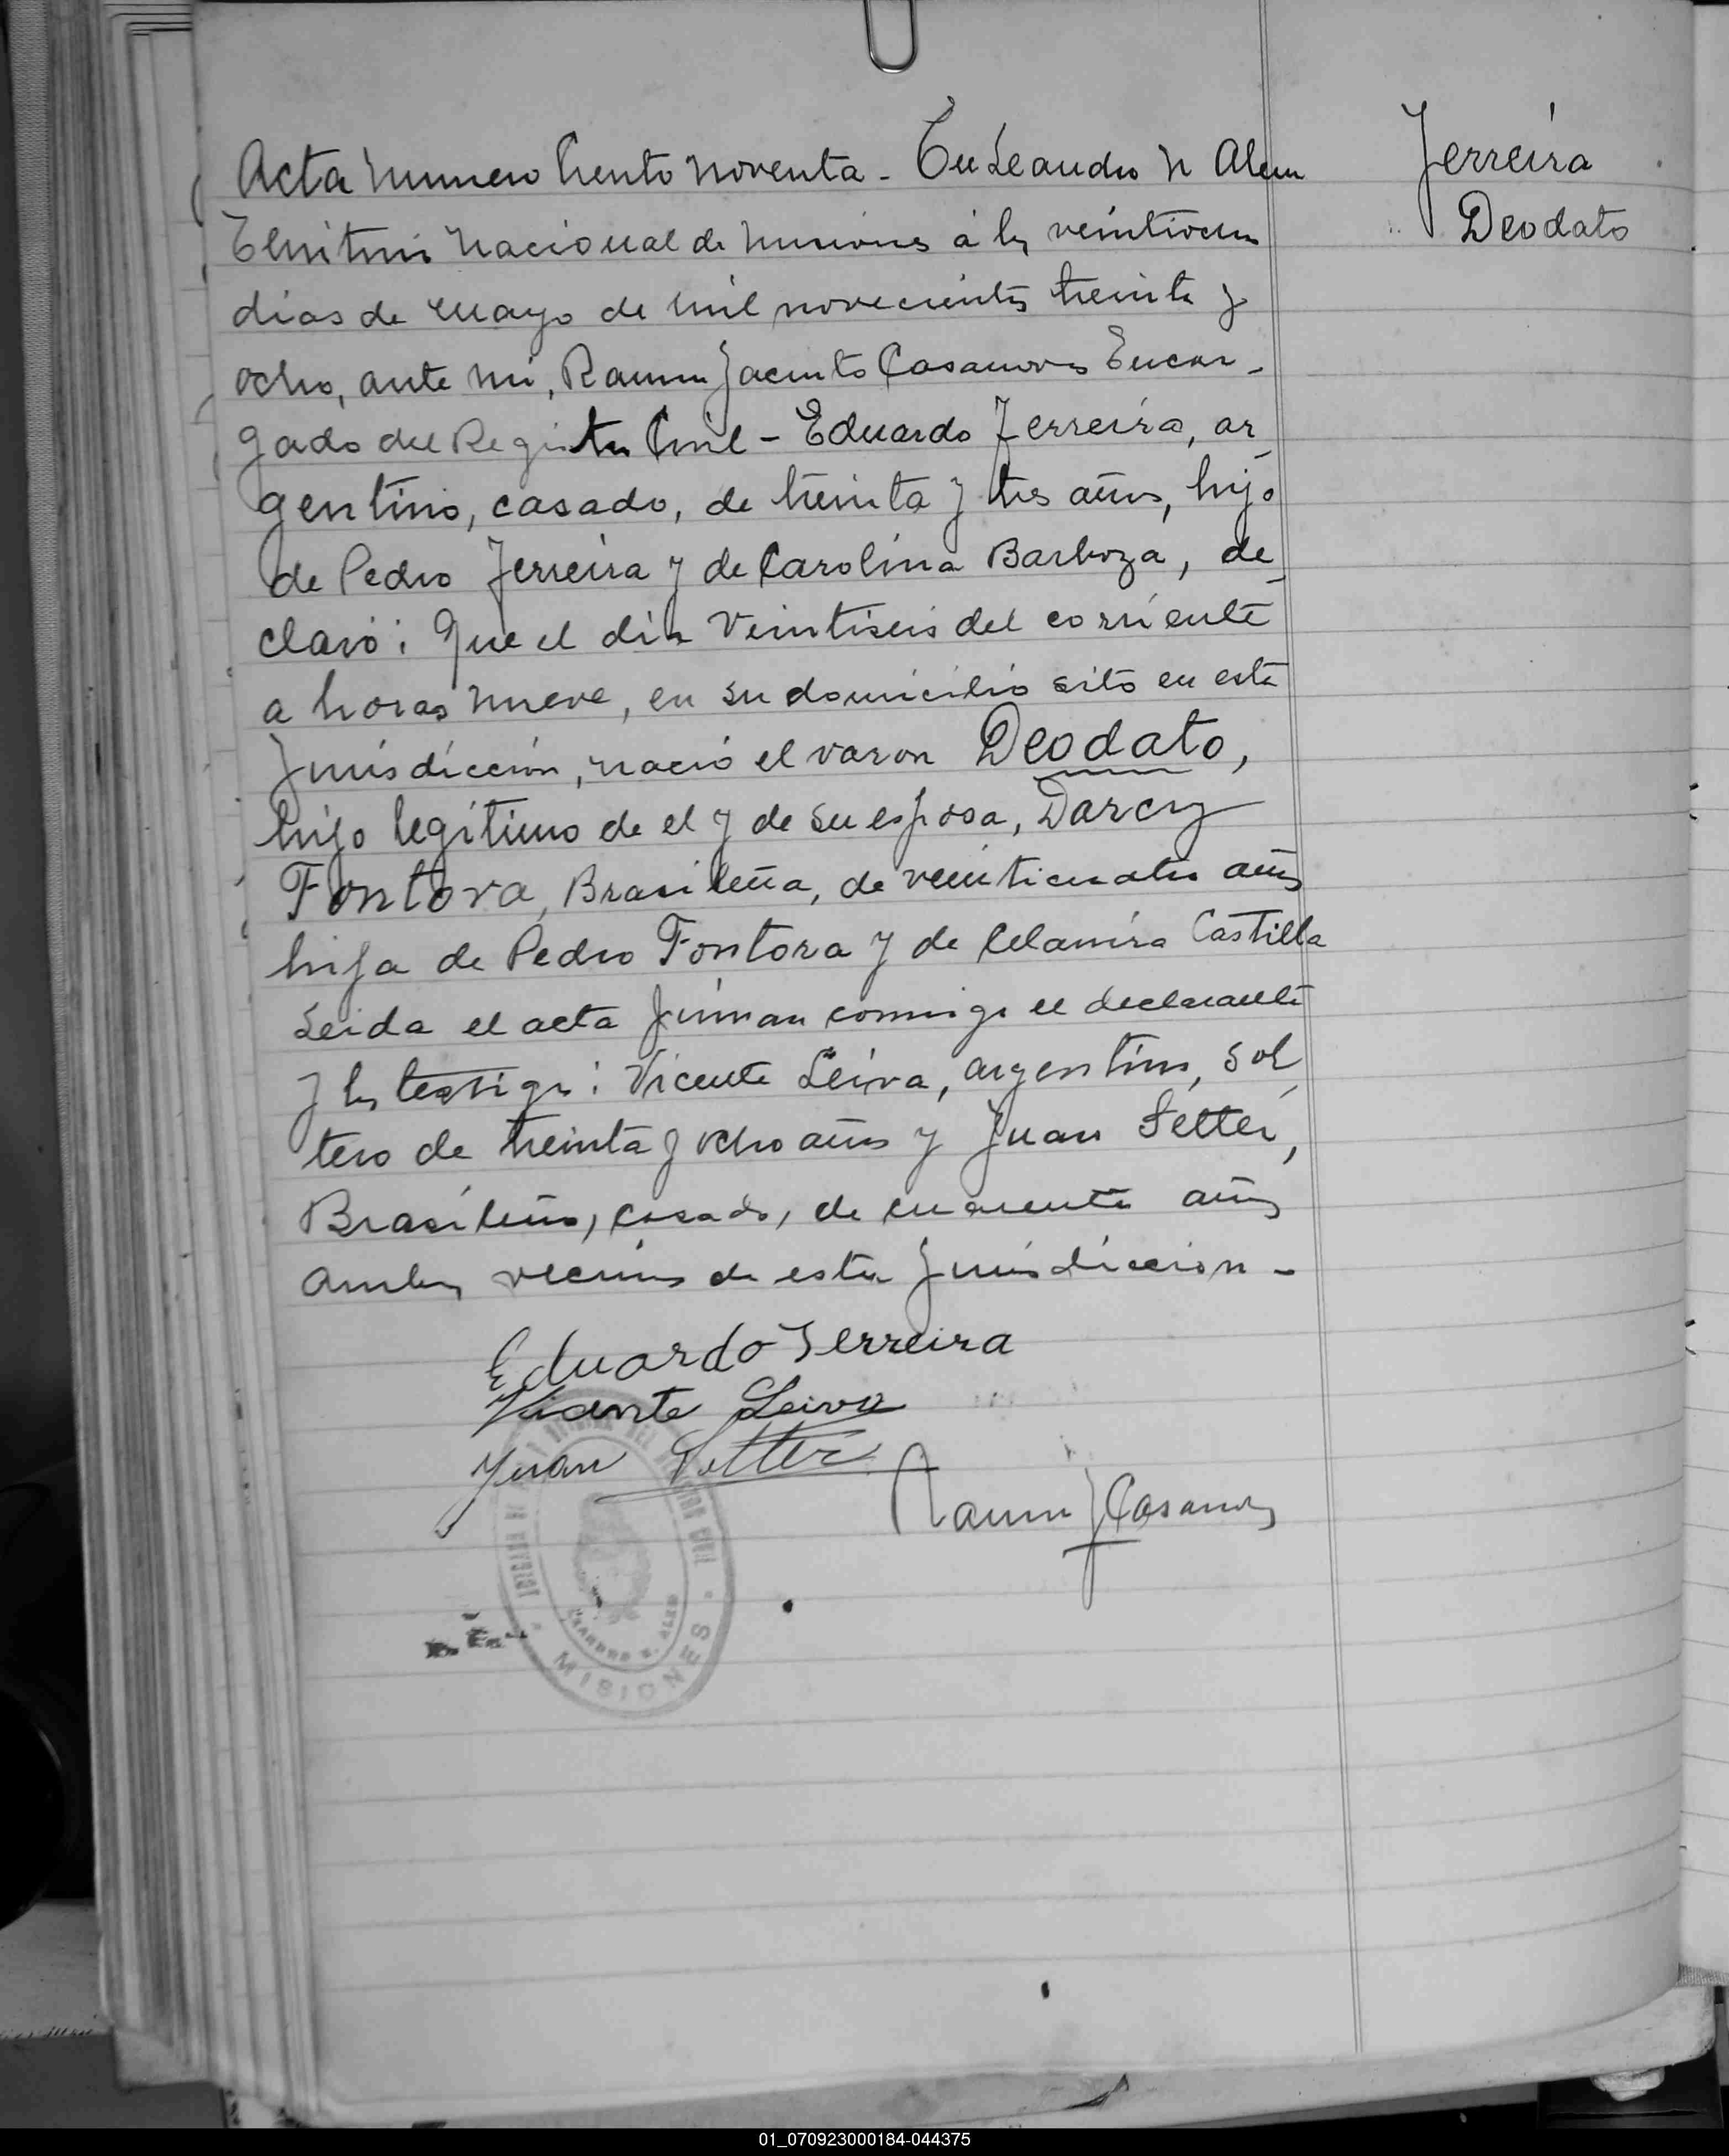 Acta Numero Ciento Noventa - En Leandro N Alem
Territorio Nacional de Misiones a los veintiocho
dias de Mayo de mil novecientos treinta y
ocho, ante mi, Ramon Jacinto Casanova Encar-
gado del Registro Civil - Eduardo Ferreira, ar
gentino, casado, de treinta y tres años, hijo
de Pedro Ferreira y de Carolina Barboza, de-
claró: Que el dia Veintiseis del corriente
a horas nueve, en su domicilio sito en esta
Jurisdicción, nació el varon Deodato,
hijo legitimo de el y de su esposa, Darcy
Fontova, Brasileña, de veinticuatro años
hija de Pedro Fontora y de Celamira Castilla
Leida el acta firman conmigo el declarante
y los testigos: Vicente Leiva, argentino, sol
tero de treinta y ocho años y Juan Setter,
Brasileño, casado, de cuarenta años
ambos vecinos de esta Jurisdiccion -
Eduardo Ferreira
Vicente Leiva
Juan Setter
Ramon J Casanova
Ferreira
Deodato
LEANDRO N. ALEM
MISIONES
01_070923000184-044375